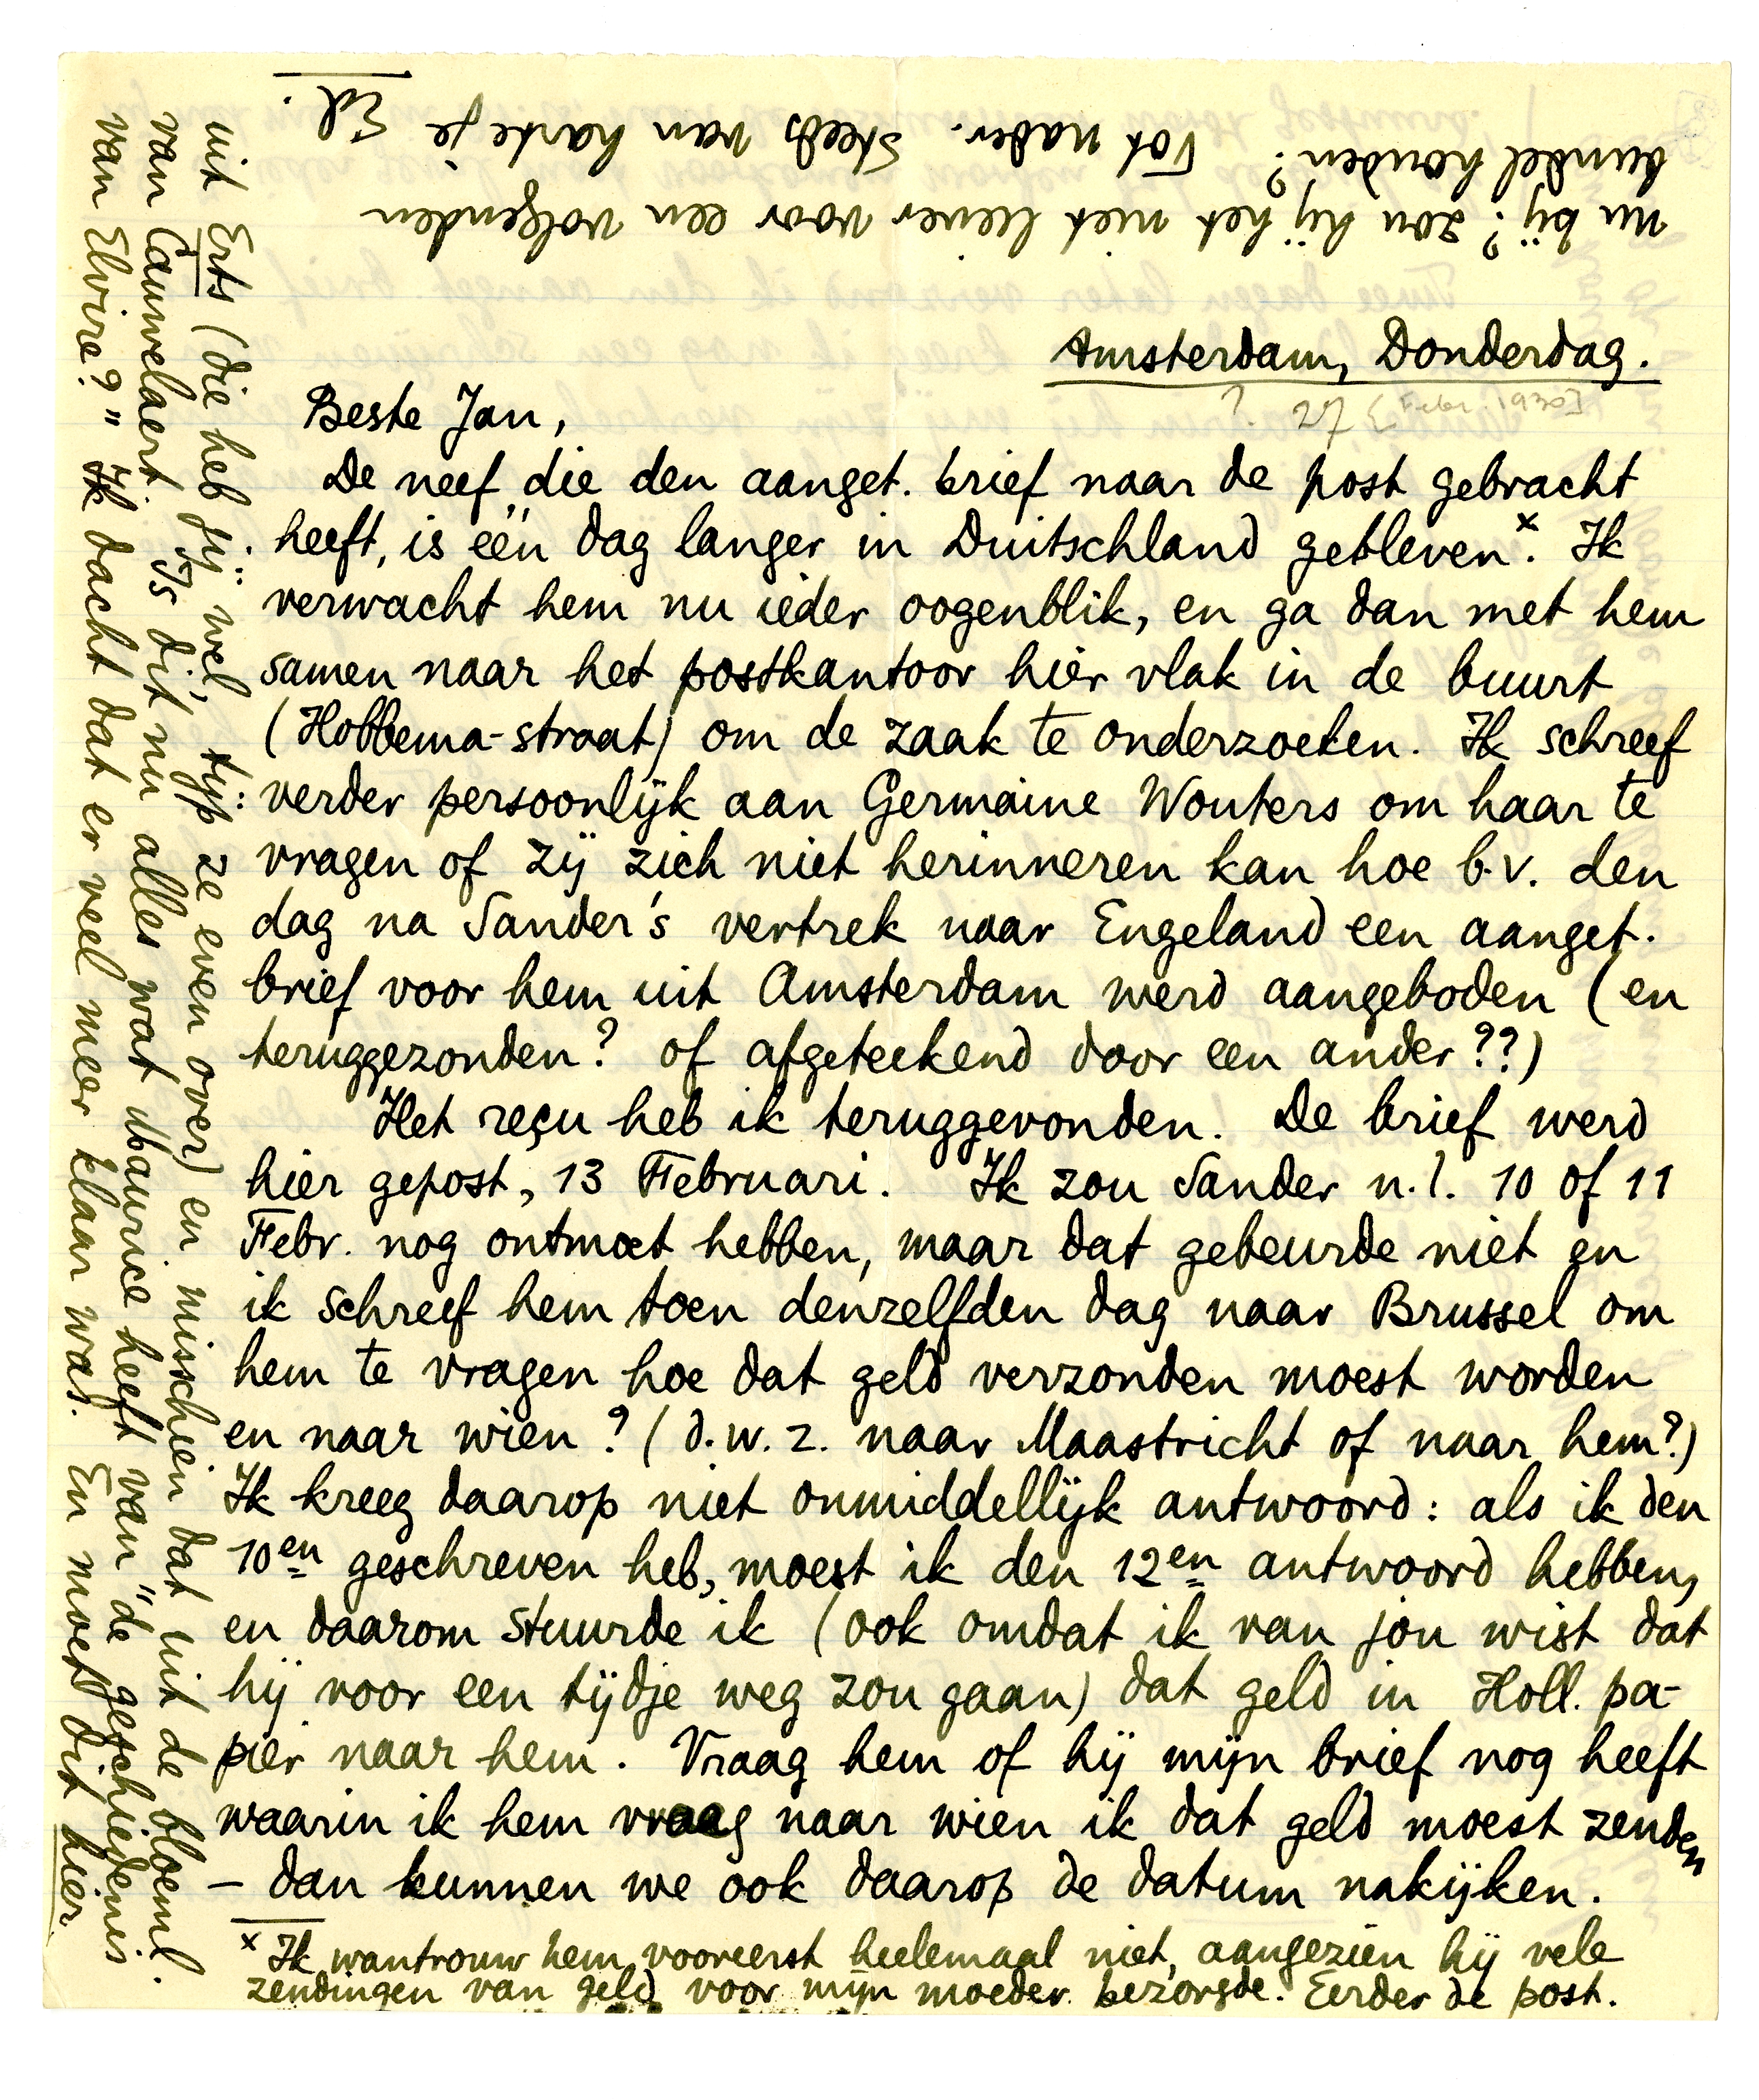 Amsterdam, Donderdag.
? 27 [Febr. 1930]
Beste Jan,
De neef, die den aanget. brief naar de post gebracht
heeft, is één dag langer in Duitschland gebleven x. Ik
verwacht hem nu ieder oogenblik, en ga dan met hem
samen naar het postkantoor hier vlak in de buurt
(Hobbema-straat) om de zaak te onderzoeken. Ik schreef
verder persoonlijk aan Germaine Wouters om haar te
vragen of zij zich niet herinneren kan hoe b.v. den
dag na Sander's vertrek naar Engeland een aanget.
brief voor hem uit Amsterdam werd aangeboden (en
teruggezonden? of afgeteekend door een ander??)
Het reçu heb ik teruggevonden. De brief werd
hier gepost, 13 Februari. Ik zou Sander n.l. 10 of 11
Febr. nog ontmoet hebben, maar dat gebeurde niet en
ik schreef hem toen denzelfden dag naar Brussel om
hem te vragen hoe dat geld verzonden moest worden
en naar wien? (d.w.z. naar Maastricht of naar hem?)
Ik kreeg daarop niet onmiddellijk antwoord: als ik den
10en geschreven heb, moest ik den 12en antwoord hebben,
en daarom stuurde ik (ook omdat ik van jou wist dat
hij voor een tijdje weg zou gaan) dat geld in Holl. pa-
pier naar hem. Vraag hem of hij mijn brief nog heeft
waarin ik hem vraag naar wien ik dat geld moest zenden
– dan kunnen we ook daarop de datum nakijken.
x Ik wantrouw hem vooreerst heelemaal niet, aangezien hij vele
zendingen van geld voor mijn moeder bezorgde. Eerder de post.
uit Erts (die heb jij wel, typ ze even over) en misschien dat uit de bloeml.
van Cauwelaert. Is dit nu alles wat Maurice heeft van "de geschiedenis
van Elvire?" Ik dacht dat er veel meer klaar was. En moet dit hier
nu bij? zou hij het niet liever voor een volgenden
bundel houden? Tot nader. Steeds van harte je Ed.